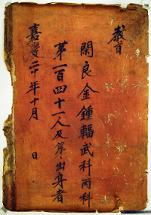 教旨
閑良金鍾輻武科丙科
第一百四十一人及第出身者
嘉慶二十年十月 日